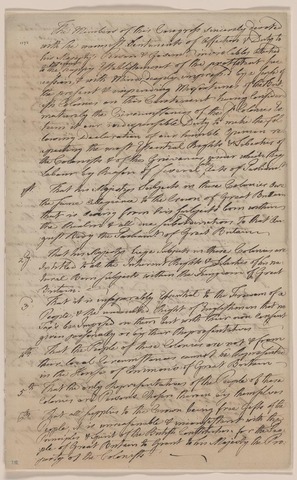 The Members of this Congress sincerely devoted
with the warmest Sentiments of Affection & Duty to
his Majestys Person & Government inviolably attached
to the happy Establishment of the protestant Suc
cession, & with Minds deeply impressed by a Sense of
the present & impending Misfortunes of the British
Colonies on this Continent having considered
maturely
the Circumstances of the said Colonies Es
teem it our indispensable Duty to make the fol
lowing Declaration of our humble Opinion re
specting the most Essential Rights & Liberties of
the Colonists & of the Grievances under which they
Labour by Reason of several Late Acts of Parliament
1st. That his Majestys Subjects in these Colonies owe
the same Allegiance to the Crown of Great Britain
that is owing from his Subjects born within
the Realm & all due Subordination to that Au
gust Body the Parliament of Great Britain
2d. That his Majestys Liege Subjects in these Colonies are
Entitled to all the Inherent Rights & Liberties of his na
tural Born Subjects within the Kingdom of Great
Britain
3 That it is inseparably Essential to the Freedom of a
People, & the undoubted Right of Englishmen that no
Taxes be Imposed on them but with their own consent
given personally or by their Representatives
4th. That the People of these Colonies are not & from
their Local Circumstances cannot be Represented
in the House of Commons of Great Britain
5th. That the only Representatives of the People of these
Colonies are Persons Chosen therein by themselves
That all Supplies to the Crown being free Gifts of the
People, it is unreasonable & inconsistent with the
Principles & Spirit of the British Constitution for the Peo
ple of Great Britain to Grant to his Majesty the Pro
perty of the Colonists